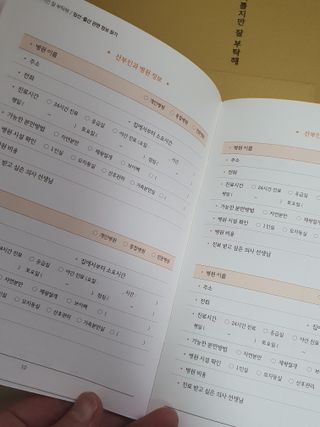 를지만 잘 부탁해
지만 잘 부탁해 / 임신·출산 관련 정보 찾기
산부인과 병원 정보
• 병원 이름
○ 개인병원 ○ 종합병원 ○ 전문병원
• 주소
• 전화
• 집에서부터 소요시간
• 진료시간 ○ 24시간 진료 ○ 응급실 ○ 야간 진료 ( 시간 )
평일 ( ~ ) 토요일 ( ~ ) 점심 ( ~ )
• 가능한 분만방법 ○ 자연분만 ○ 제왕절개 ○ 브이백 ○ ( )
병원 시설 확인 ○ 1인실 ○ 모자동실 ○ 산후관리 ○ 가족분만실 ○ (
병원 비용
료 받고 싶은 의사 선생님
○ 개인병원 ○ 종합병원 ○ 전문병원
• 집에서부터 소요시간
24시간 진료 ○ 응급실 ○ 야간 진료 ( 시간 )
~ ) 토요일 ( ~ ) 점심 ( ~ )
○ 자연분만 ○ 제왕절개 ○ 브이백 ○ ( )
○ 1인실 ○ 모자동실 ○ 산후관리 ○ 가족분만실 ○ (
은 의사 선생님
12
산부인과
• 병원 이름
• 주소
• 전화
• 진료시간 ○ 24시간 진료 ○ 응급실
평일 ( ~ ) 토요일
• 가능한 분만방법 ○ 자연분만 ○ 제왕절
• 병원 시설 확인 ○ 1인실 ○ 모자동실
• 병원 비용
• 진료 받고 싶은 의사 선생님
• 병원 이름
• 주소
• 전화
• 집에
• 진료시간 ○ 24시간 진료 ○ 응급실
평일 ( ~ ) 토요일 (
• 가능한 분만방법 ○ 자연분만 ○ 제왕절개
• 병원 시설 확인 ○ 1인실 ○ 모자동실 ○ 산
• 병원 비용
• 진료 받고 싶은 의사 선생님